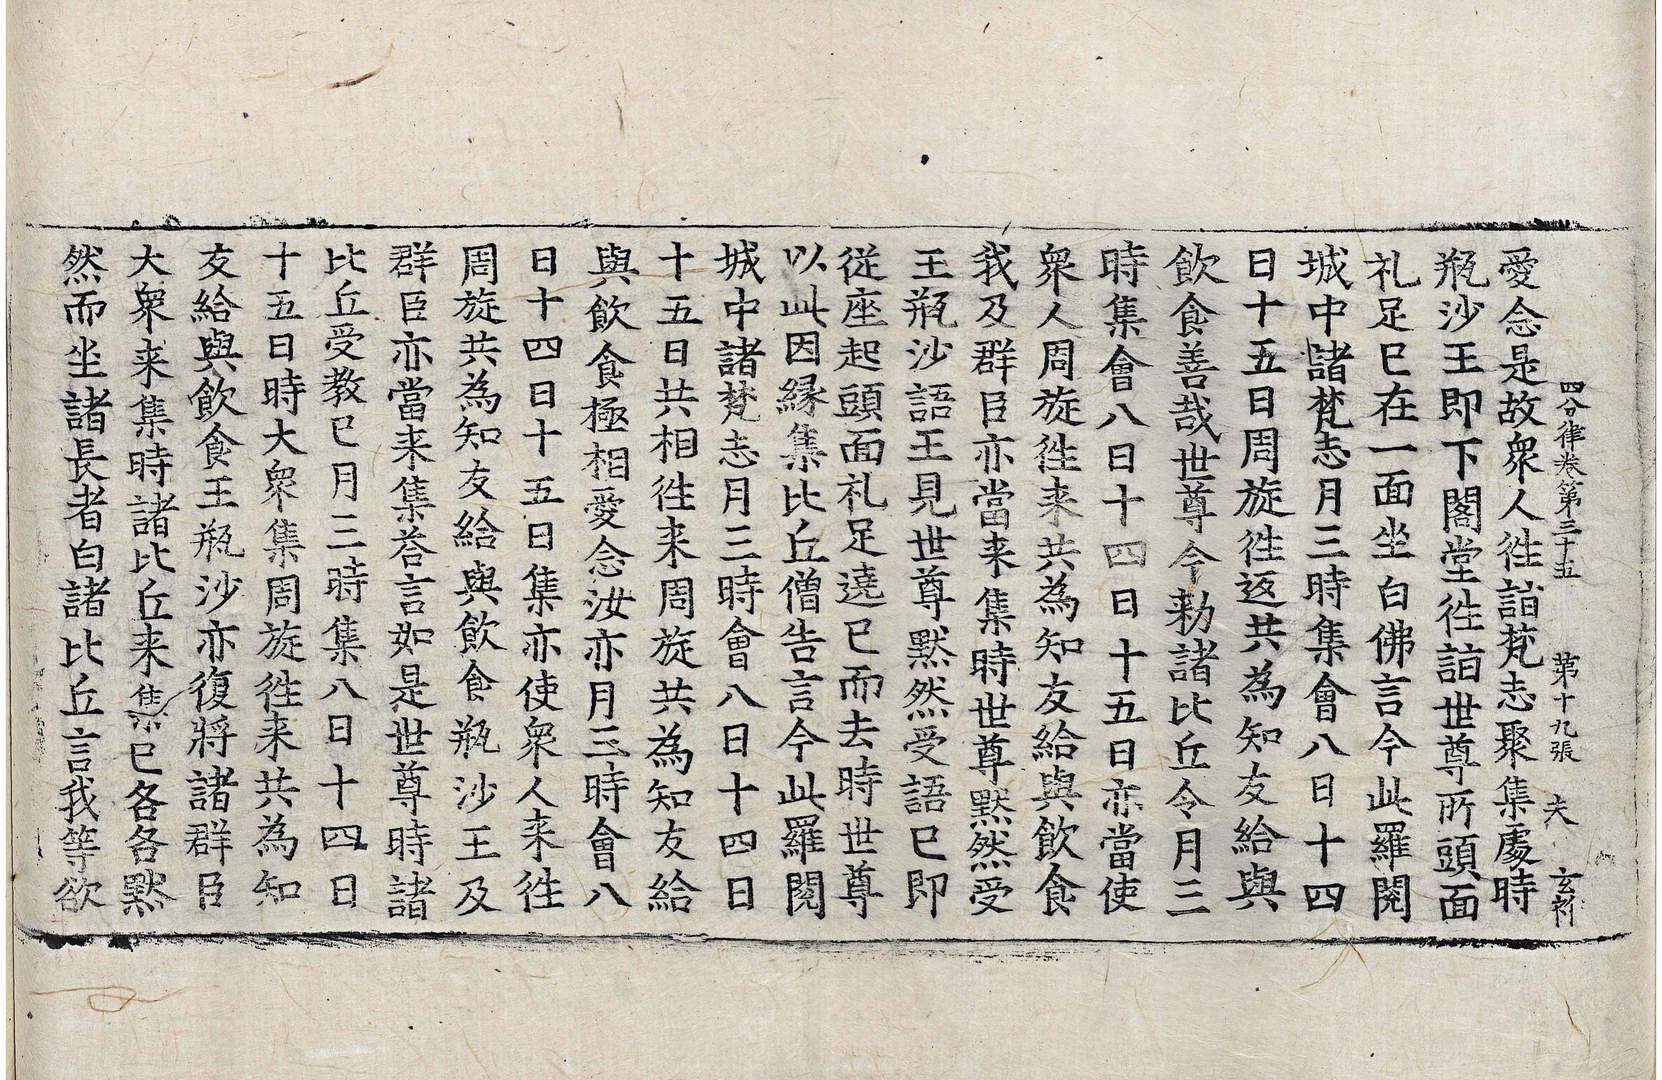 四分律卷第三十五 第十九張 夫 玄祈
愛念是故衆人徃詣梵志聚集處時
瓶沙王即下閣堂徃詣世尊所頭面
礼足已在一面坐白佛言今此羅閱
城中諸梵志月三時集會八日十四
日十五日周旋徃返共為知友給與
飲食善哉世尊今勑諸比丘令月三
時集會八日十四日十五日亦當使
衆人周旋徃来共為知友給與飲食
我及群臣亦當来集時世尊黙然受
王瓶沙語王見世尊黙然受語已即
従座起頭面礼足遶已而去時世尊
以此因縁集比丘僧告言今此羅閱
城中諸梵志月三時會八日十四日
十五日共相徃来周旋共為知友給
與飲食極相愛念汝亦月三時會八
日十四日十五日集亦使衆人来徃
周旋共為知友給與飲食瓶沙王及
群臣亦當来集荅言如是世尊時諸
比丘受教已月三時集八日十四日
十五日時大衆集周旋徃来共為知
友給與飲食王瓶沙亦復將諸群臣
大衆来集時諸比丘来集已各各黙
然而坐諸長者白諸比丘言我等欲